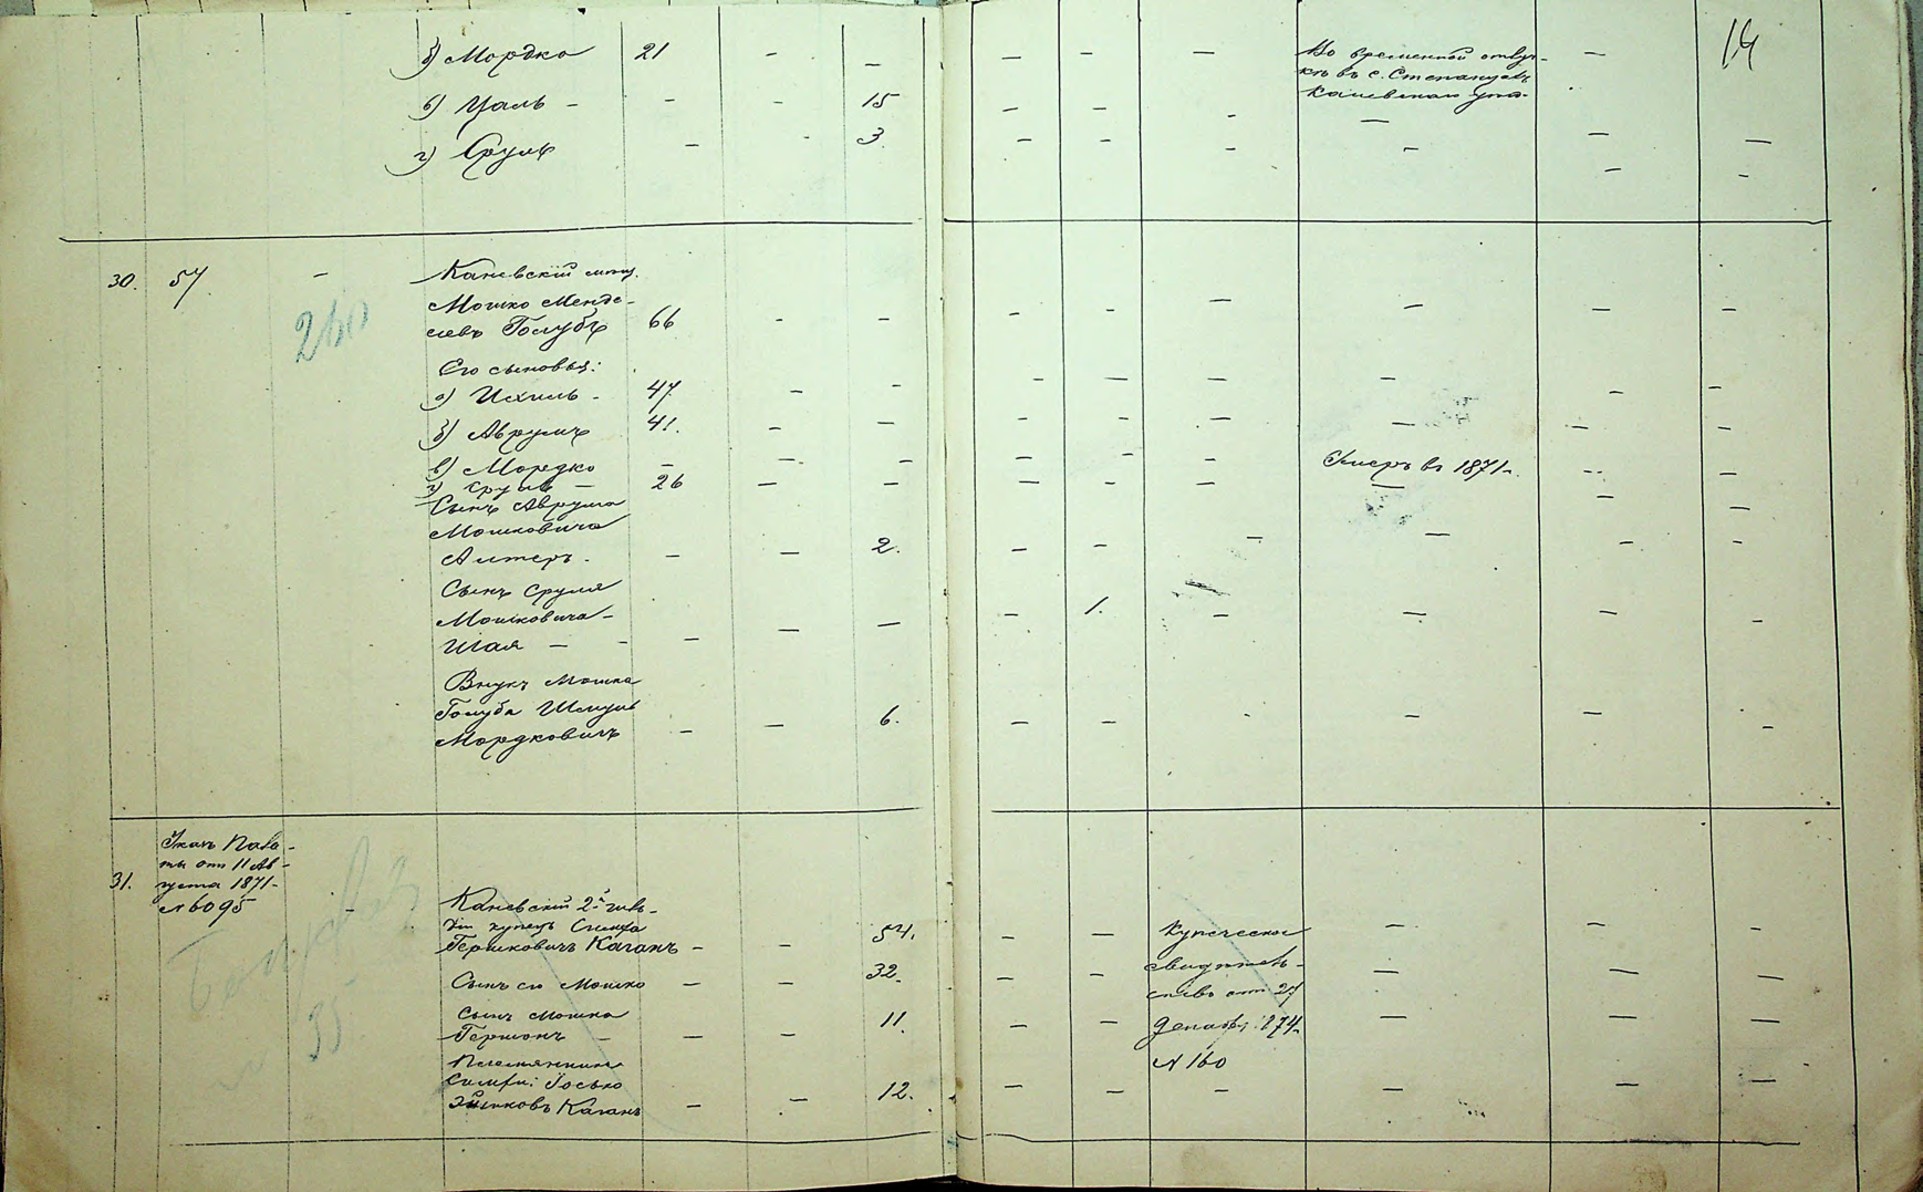 б) Мордко 21 - - - - - Во временной отлуч-
кѣ въ с. Степанцахъ
Каневскаго уѣз. - 14
в) Цаль - - - 15 - - - - -
г) Сруль - - 3 - - - - - -
30. 57 - Каневскій мѣщ.
Мошко Менде-
левъ Голубъ 66 - - - - - - - -
Его сыновья:
а) Ихиль - 47 - - - - - - - -
б) Аврумъ 41. - - - - - - - -
в) Мордко - - - - - - Умеръ въ 1871 - -
г) Сруль - 26 - - - - - - - -
Сынъ Аврума
Мошковича
Алтеръ. - - 2. - - - - - -
Сынъ Сруля
Мошковича -
Шая - - - - - - 1. - - - -
Внукъ Мошка
Голуба Шмуль
Мордковичъ - - 6. - - - - - -
31. Указъ Пала-
ты отъ 11 Ав-
густа 1871-
№ 6095 - Каневскій 2й гиль-
діи купецъ Симха
Гершковичъ Каганъ - - 54. - - Купеческое - - -
Сынъ его Мошко - - 32. - - свидѣтель-
ство отъ 27 - - -
Сынъ Мошка
Гершонъ - - - 11. - - Декабря 1874 - - -
№ 160
Племянникъ
Симхи: Іосько
Эйзиковъ Каганъ - - 12. - - - - - -